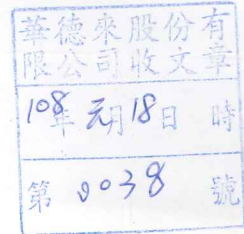 華德來股份有
限公司收文章
108年元月18日 時
第0038號